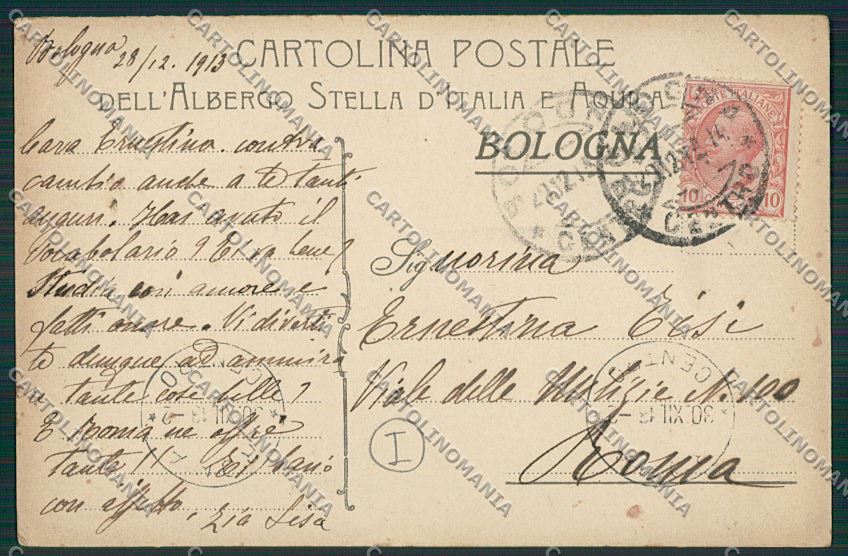 Bologna 28/12. 1913
CARTOLINA POSTALE
DELL'ALBERGO STELLA D'ITALIA E AQUILA
BOLOGNA
Cara Ernestina. contra
cambio anche a te tanti
auguri. Hai avuto il
vocabolario? Ti va bene?
Studia con amore e
fatti onore. Vi diverti
te dunque ad ammira
re tante cose belle?
E Roma ne offre
tante!! Ti bacio
con affetto,
Zia Lisa
Signorina
Ernestina Tisi
Viale delle Milizie N. 100
Roma
I
POSTE ITALIANE
10
10
CENTRO
30.XII.13
30.XII.13
CENTRO
CARTOLINOMANIA